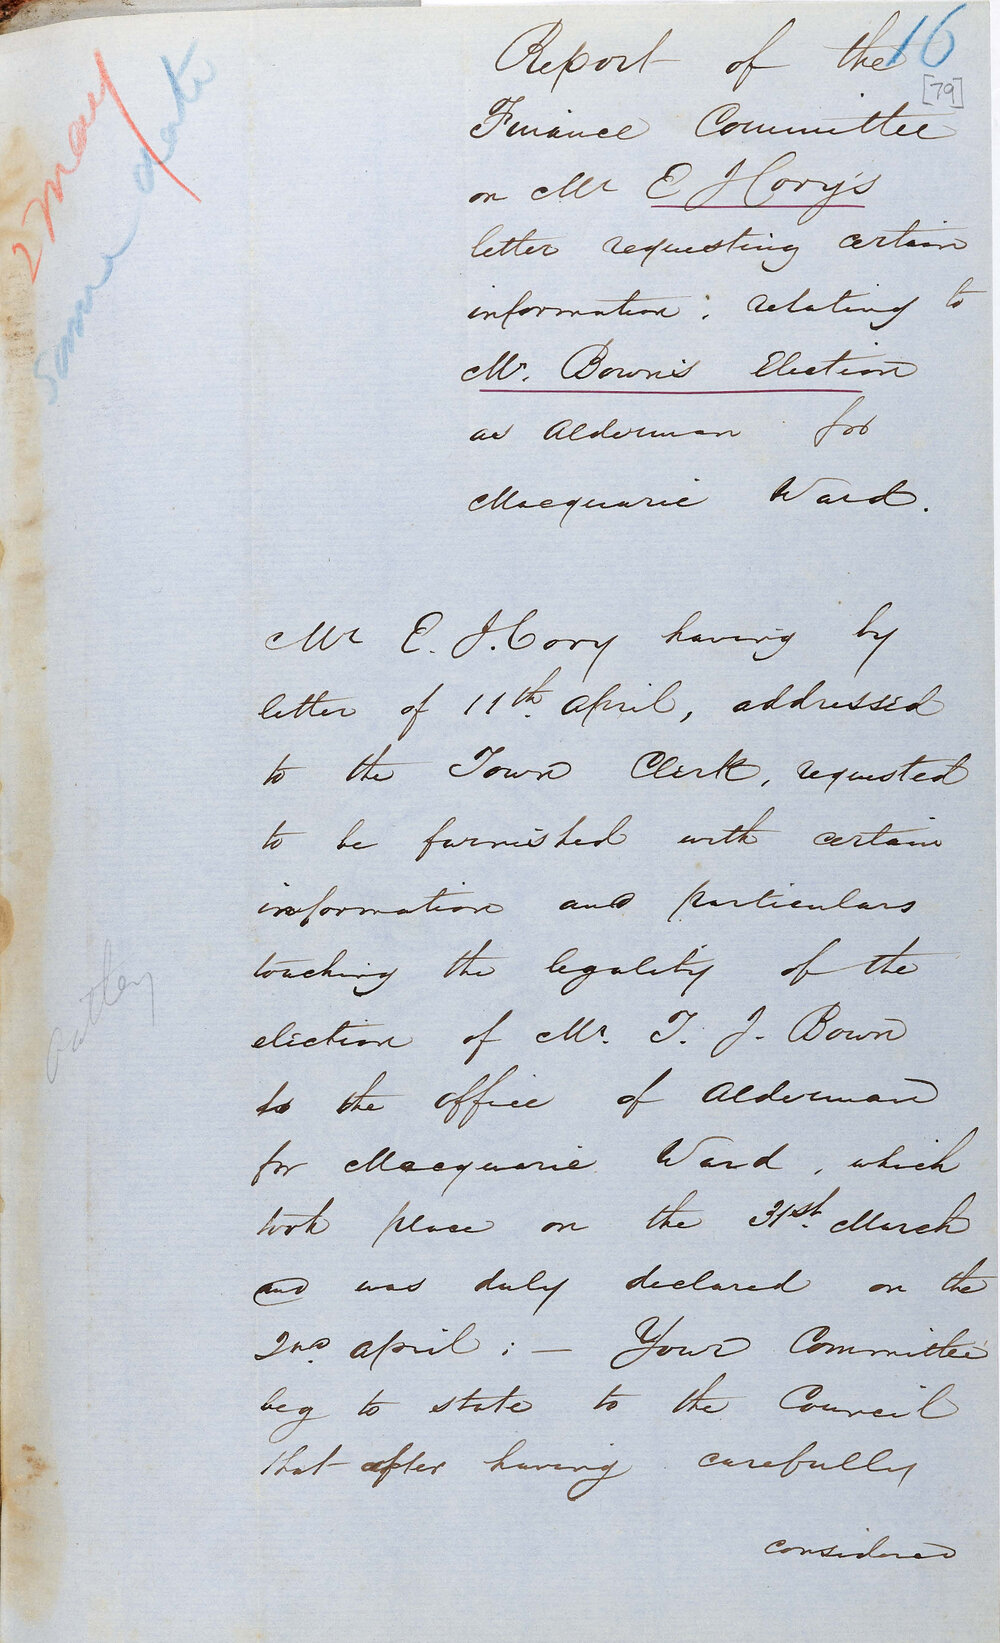 16
[79]
2 May
Same date
Report of the
Finance Committee
on Mr E J Cory's
letter requesting certain
information; relating to
Mr. Bown's Election
as Alderman for
Macquarie Ward.
Mr E. J. Cory having by
letter of 11th April, addressed
to the Town Clerk, requested
to be furnished with certain
information and particulars
touching the legality of the
election of Mr. T. J. Bown
to the office of Alderman
for Macquarie Ward, which
took place on the 31st March
and was duly declared on the
2nd April; — Your Committee
beg to state to the Council
that after having carefully
considered